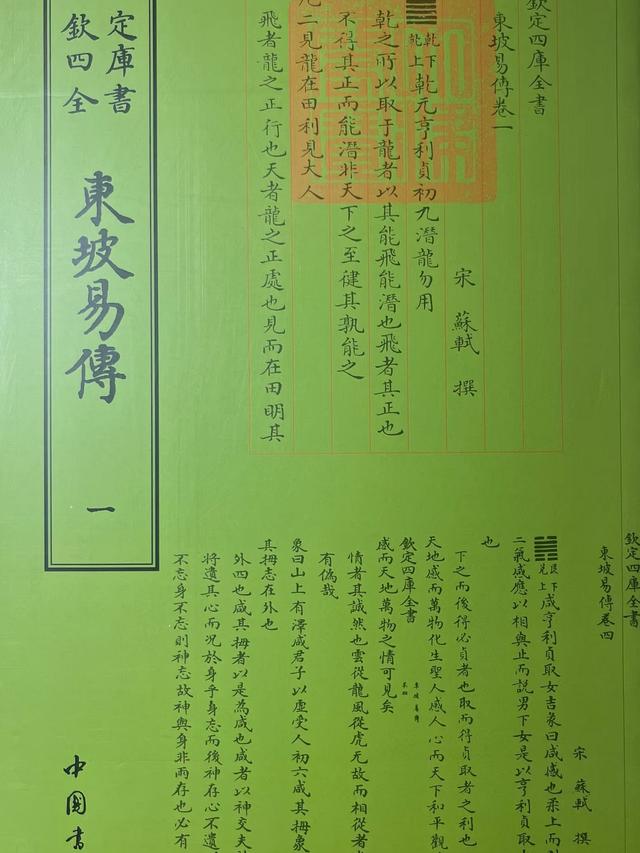 欽定
四庫
全書
東坡易傳
一
中國書
欽定四庫全書
東坡易傳卷一
宋 蘇軾 撰
乾下乾上乾元亨利貞初九潛龍勿用
乾之所以取于龍者以其能飛能潛也飛者其正也
不得其正而能潛非天下之至健其孰能之
九二見龍在田利見大人
飛者龍之正行也天者龍之正處也見而在田明其
欽定四庫全書
東坡易傳卷四
宋 蘇軾 撰
艮下兌上咸亨利貞取女吉彖曰咸感也柔上而剛
二氣感應以相與止而說男下女是以亨利貞取
也
下之而後得必貞者也取而得貞取者之利也
天地感而萬物化生聖人感人心而天下和平觀
欽定四庫全書
感而天地萬物之情可見矣
情者其誠然也雲從龍風從虎无故而相從者
有偽哉
象曰山上有澤咸君子以虛受人初六咸其拇象
其拇志在外也
外四也咸其拇者以是為咸也咸者以神交夫
將遺其心而況於身乎身忘而後神存心不遺
不忘身不忘則神忘故神與身非兩存也必有